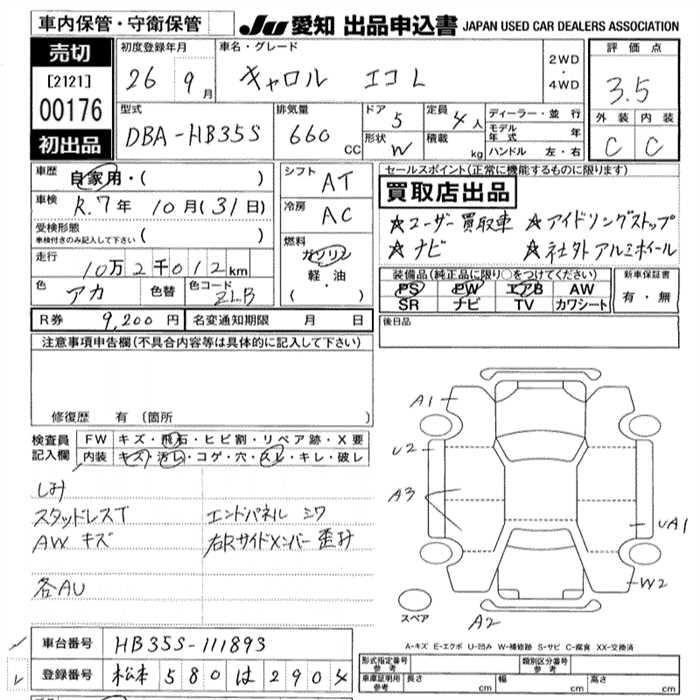 車内保管・守衛保管
JU 愛知 出品申込書 JAPAN USED CAR DEALERS ASSOCIATION
売切
[2121]
00176
初出品
初度登録年月
26 9月
車名・グレード
キャロル エコL
2WD
・
4WD
評価点
3.5
外装 内装
C C
型式
DBA-HB35S
排気量
660 CC
ドア 5
形状 W
定員 4人
積載 kg
ディーラー・並行
モデル年式 年
ハンドル 左・右
車歴 自家用・( )
車検 R.7年 10月(31日)
受検形態
車検付きのみ記入して下さい ( )
走行 10万2千012km
色 アカ 色替 色コード ZLB
シフト AT
冷房 AC
燃料
ガソリン
軽・油
( ・ )
セールスポイント(正常に機能するものに限ります)
買取店出品
☆ユーザー買取車 ☆アイドリングストップ
☆ナビ ☆社外アルミホイール
装備品(純正品に限り○をつけてください)
PS PW エアB AW
SR ナビ TV カワシート
新車保証書
有・無
R券 9,200円 名変通知期限 月 日
後日品
注意事項申告欄(不具合内容等は具体的に記入して下さい)
修復歴 有 〔箇所 〕
検査員記入欄
FW キズ・飛石・ヒビ割・リペア跡・X要
内装 キズ・汚レ・コゲ・穴・スレ・キレ・破レ
しみ
スタッドレスT エンドパネル ミワ
AW キズ 右Rサイドメンバー歪み
各AU
A1
U2
A3
UA1
W2
A2
スペア
A-キズ E-エクボ U-凹み W-補修跡 S-サビ C-腐食 XX-交換済
車台番号 HB35S-111893
登録番号 松本 580 は 2904
型式指定番号 参考
類別区分番号 参考
車庫証明用 参考 長さ cm 幅 cm 高さ cm